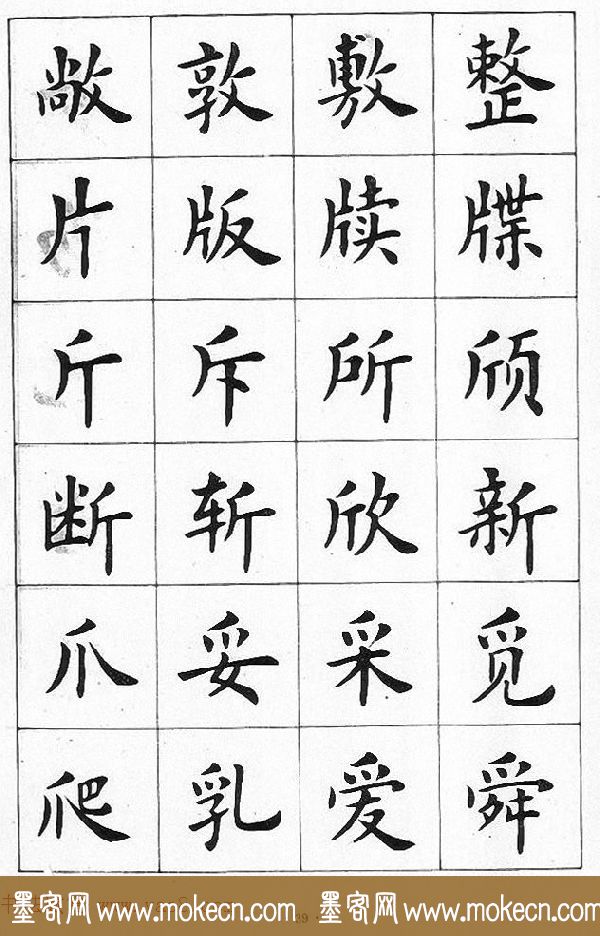 敞 敦 敷 整
片 版 牍 牒
斤 斥 所 颀
断 斩 欣 新
爪 妥 采 觅
爬 乳 爱 舜
39
墨客网 www.mokecn.com 墨客网 www.mokecn.com